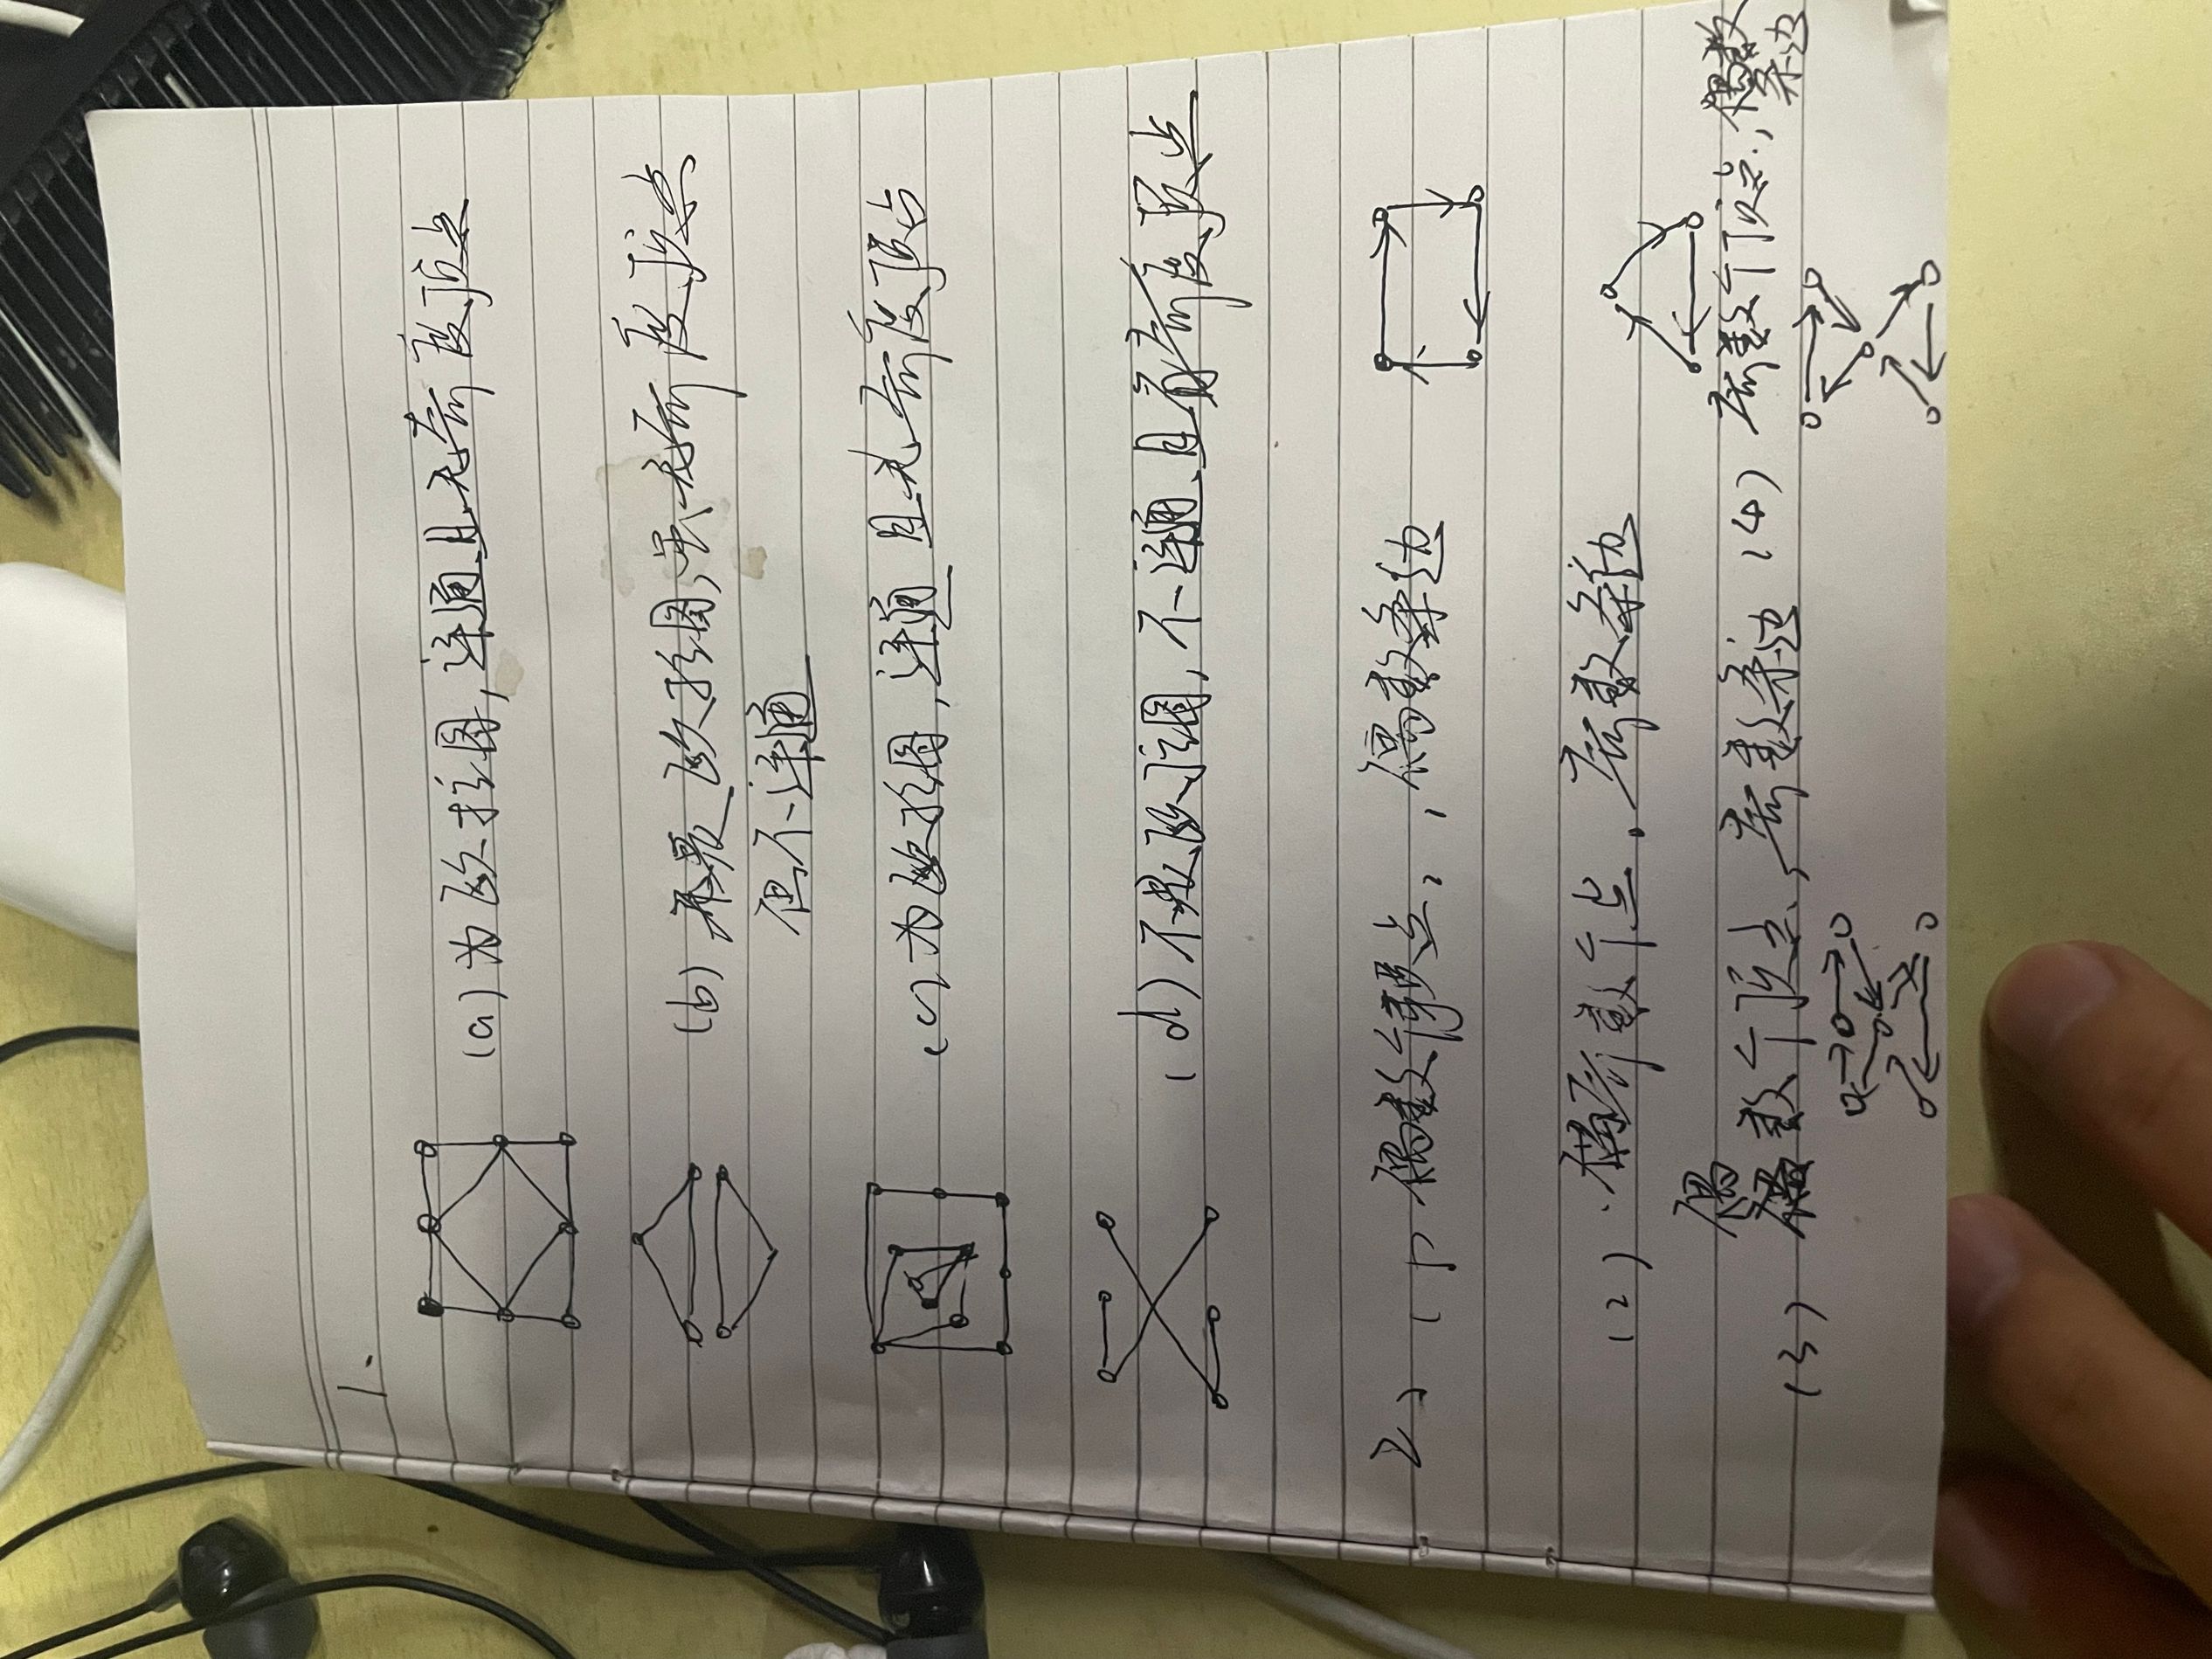 1.
(a) 为欧拉图, 连通且无奇度顶点
(b) 不是欧拉图, 虽无奇度顶点
但不连通
(c) 为欧拉图, 连通且无奇度顶点
(d) 不是欧拉图, 不连通且有奇度顶点
2、(1) 偶数个顶点, 偶数条边
(2) 奇数个点, 奇数条边
(3) 偶数个顶点, 奇数条边
(4) 奇数个顶点, 偶数
条边